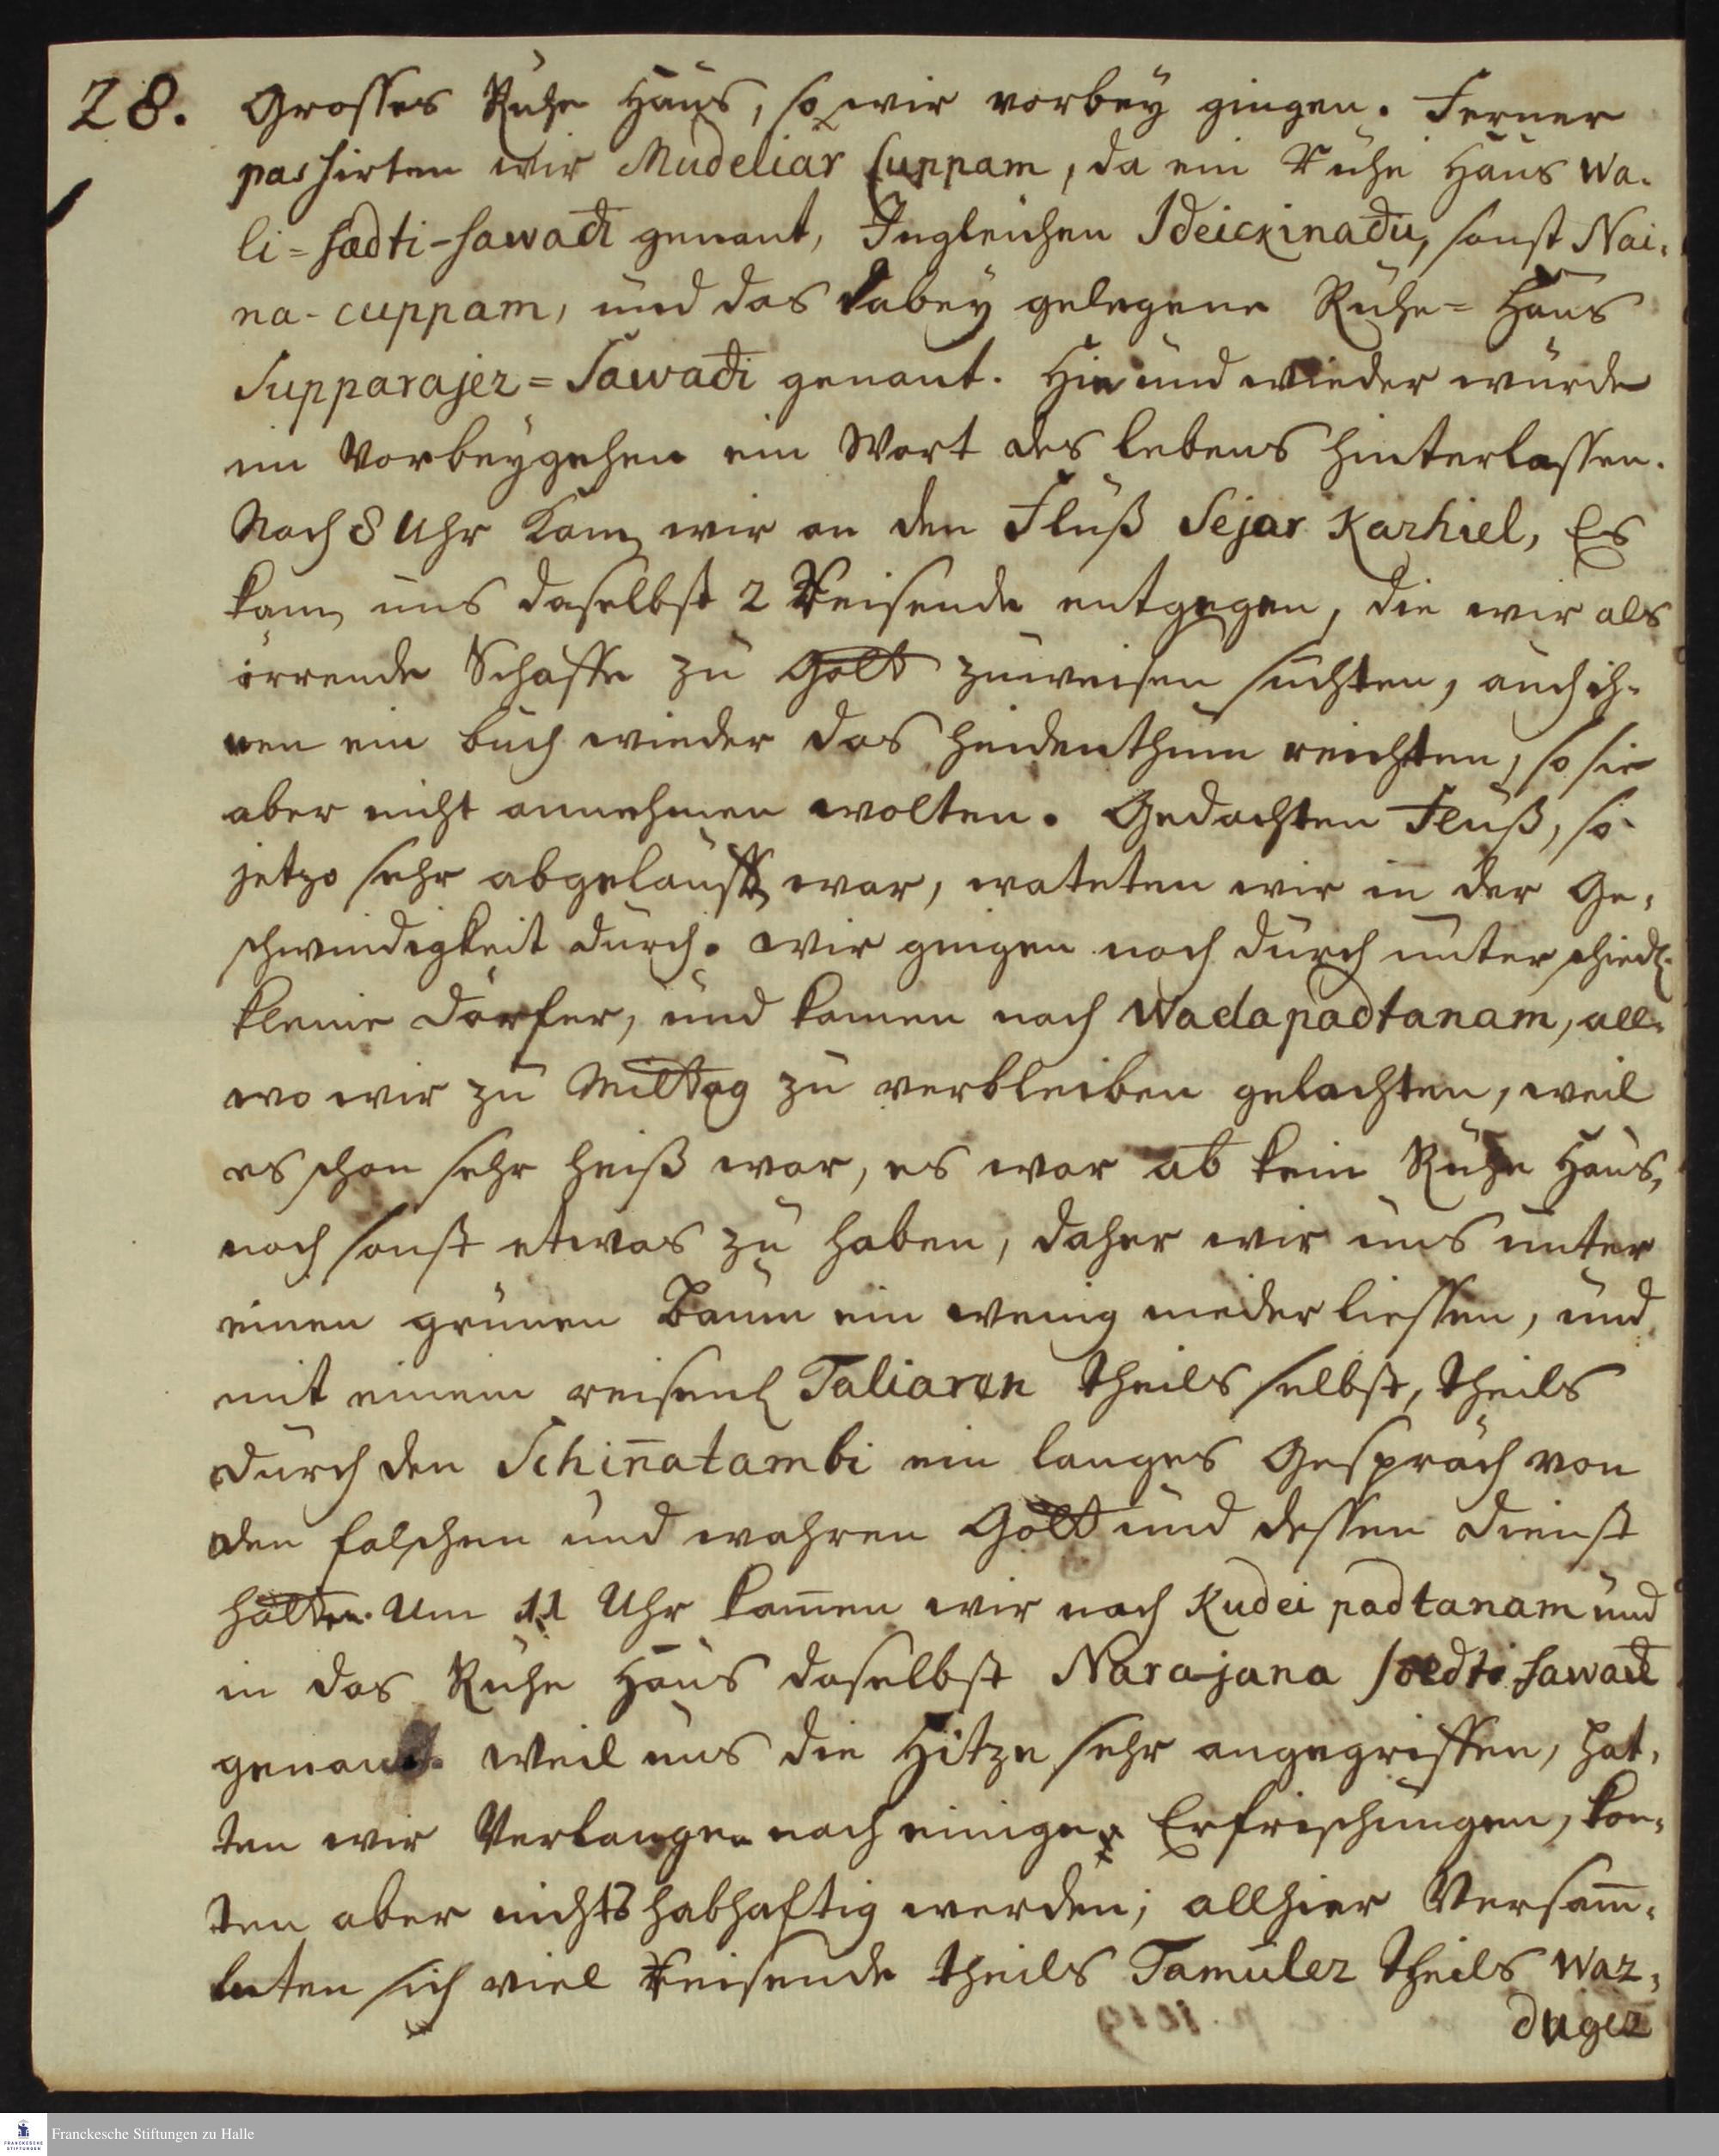 28. Grosses Ruhe Haus, so wir vorbey gingen. Ferner
passirten wir Mudeliar Cuppam, da ein Ruhe Haus Wa-
li=sædti-sawadi genant, Ingleichen Ideickinadu, sonst Nai-
na-cuppam, und das dabey gelegene Ruhe=Haus
Supparajer=Sawadi genant. Hin und wieder wurde
im Vorbeygehen ein Wort des lebens hinterlassen.
Nach 8 Uhr kam̃ wir an den Fluß Sejar Kazhiel, Es
kam̃ uns daselbst 2 Reisende entgegen, die wir als
irrende Schaffe zu Gott zuweisen suchten, auch ih-
nen ein buch wieder das heidenthum reichten, so sie
aber nicht annehmen wolten. Gedachten Fluß, so
jetzo sehr abgelauff war, wateten wir in der Ge-
schwindigkeit durch. wir gingen noch durch unterschiedl.
kleine dörfer, und kamen nach Wadapadtanam, all-
wo wir zu Mittag zu verbleiben gedachten, weil
es schon sehr heiß war, es war ab kein Ruhe Haus,
noch sonst etwas zu haben, daher wir uns unter
einen grünen Baum ein wenig niederliessen, und
mit einem reisend Taliaren theils selbst, theils
durch den Schin̄atambi ein langes Gespräch von
den falschen und wahren Gott und dessen dienst
hatten. Um 11 Uhr kam̄en wir nach Kudei padtanam und
in das Ruhe Haus daselbst Narajana sædti sawadi
genant. Weil uns die Hitze sehr angegriffen, hat-
ten wir Verlangen nach einigen Erfrischungen, kon-
ten aber nichts habhaftig werden; allhier Versam̄-
leten sich viel Reisende theils Tamuler theils War-
duger
Franckesche Stiftungen zu Halle